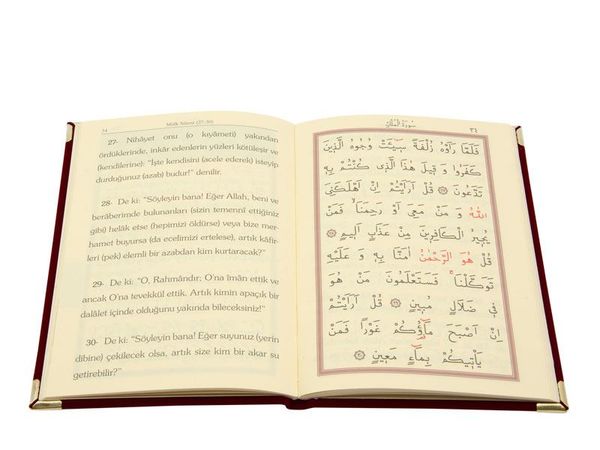 34
Mülk Sûresi (27-30)
27- Nihâyet onu (o kıyâmeti) yakından
ördüklerinde, inkâr edenlerin yüzleri kötüleşir ve
(kendilerine): "İşte kendisini (acele ederek) isteyip
durduğunuz (azab) budur!" denilir.
28- De ki: "Söyleyin bana! Eğer Allah, beni ve
berâberimde bulunanları (sizin temennî ettiğiniz
gibi) helâk etse (hepimizi öldürse) veya bize mer-
hamet buyursa (da ecelimizi ertelese), artık kâfir-
leri (pek) elemli bir azabdan kim kurtaracak?"
29- De ki: "O, Rahmândır; O'na îmân ettik ve
ancak O'na tevekkül ettik. Artık kimin apaçık bir
dalâlet içinde olduğunu yakında bileceksiniz!"
30- De ki: "Söyleyin bana! Eğer suyunuz (yerin
dibine) çekilecek olsa, artık size kim bir akar su
getirebilir?"
سُورَةُ الْمُلْكِ
٣٤
فَلَمَّا رَاَوْهُ زُلْفَةً سٖٓيـَٔتْ وُجُوهُ الَّذٖينَ
كَفَرُوا وَ قٖيلَ هٰذَا الَّذٖى كُنْتُمْ بِهٖ
تَدَّعُونَ ۝ قُلْ اَرَاَيْتُمْ اِنْ اَهْلَكَنِىَ
اللّٰهُ وَ مَنْ مَعِىَ اَوْ رَحِمَنَاۙ فَمَنْ
يُجٖيرُ الْكَافِرٖينَ مِنْ عَذَابٍ اَلٖيمٍ ۝
قُلْ هُوَ الرَّحْمٰنُ اٰمَنَّا بِهٖ وَ عَلَيْهِ
تَوَكَّلْنَاۚ فَسَتَعْلَمُونَ مَنْ هُوَ
فٖى ضَلَالٍ مُبٖينٍ ۝ قُلْ اَرَاَيْتُمْ
اِنْ اَصْبَحَ مَٓاؤُكُمْ غَوْرًا فَمَنْ
يَاْتٖيكُمْ بِمَٓاءٍ مَعٖينٍ ۝